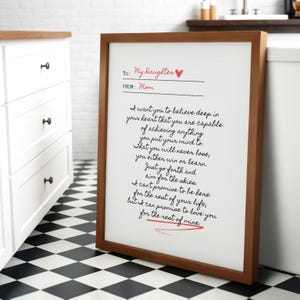 To: My Daughter
From: Mom
I want you to believe deep in
your heart that you are capable
of achieving anything
you put your mind to.
That you will never lose,
you either win or learn.
Just go forth and
aim for the skies.
I can't promise to be here
for the rest of your life,
but I can promise to love you
for the rest of mine.